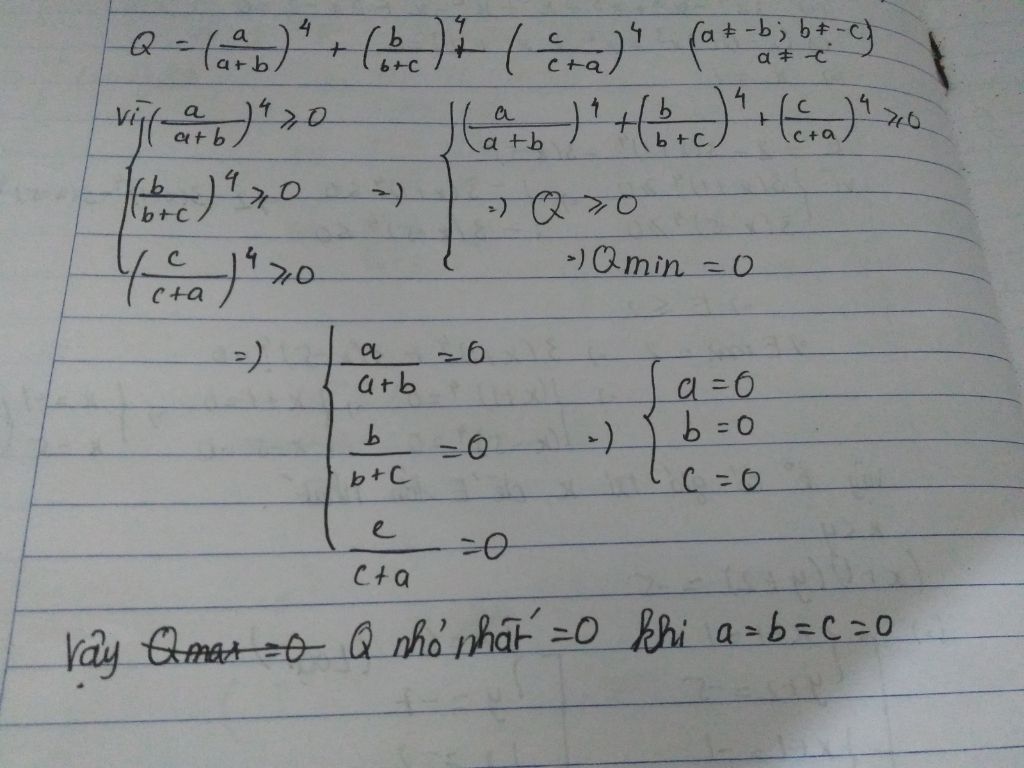 Q = (a/(a+b))^4 + (b/(b+c))^4 + (c/(c+a))^4 (a ≠ -b; b ≠ -c; a ≠ -c)
vì (a/(a+b))^4 ≥ 0
(b/(b+c))^4 ≥ 0
(c/(c+a))^4 ≥ 0
=> (a/(a+b))^4 + (b/(b+c))^4 + (c/(c+a))^4 ≥ 0
=> Q ≥ 0
=> Qmin = 0
=> a/(a+b) = 0
b/(b+c) = 0
c/(c+a) = 0
=> a = 0
b = 0
c = 0
Vậy Qmax = 0 Q nhỏ nhất = 0 khi a = b = c = 0